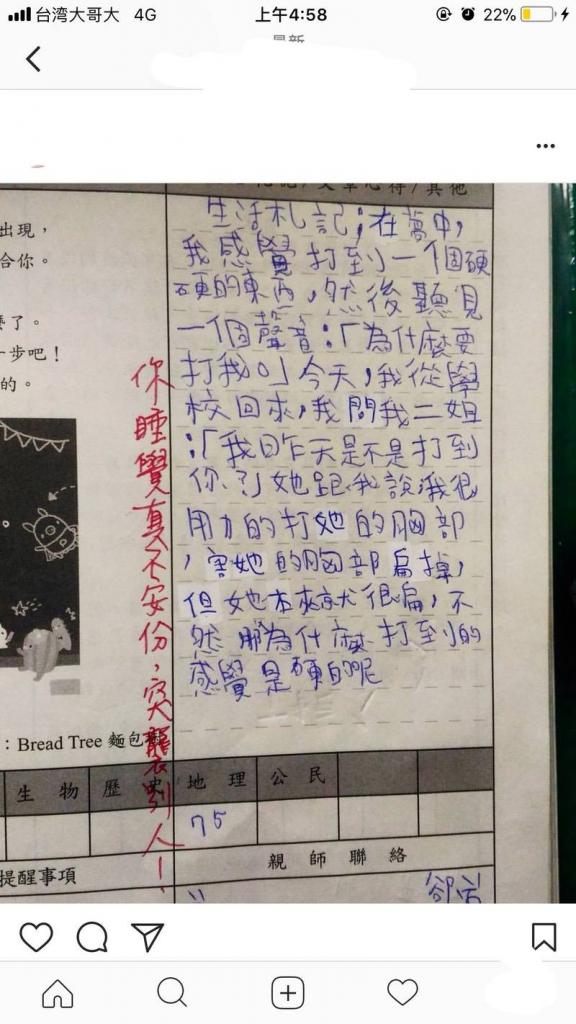 台湾大哥大 4G
上午4:58
22%
出現，
合你。
麼了。
一步吧！
的。
生活札記：在夢中，
我感覺打到一個硬
硬的東西，然後聽見
一個聲音：「為什麼要
打我。」今天，我從學
校回來，我問我二姐
：「我昨天是不是打到
你？」她跟我說我很
用力的打她的胸部
，害她的胸部扁掉，
但她本來就很扁，不
然那為什麼打到的
感覺是硬的呢
你睡覺真不安份，突襲別人！
：Bread Tree 麵包
生物 歷史 地理 公民
75
提醒事項
親師聯絡